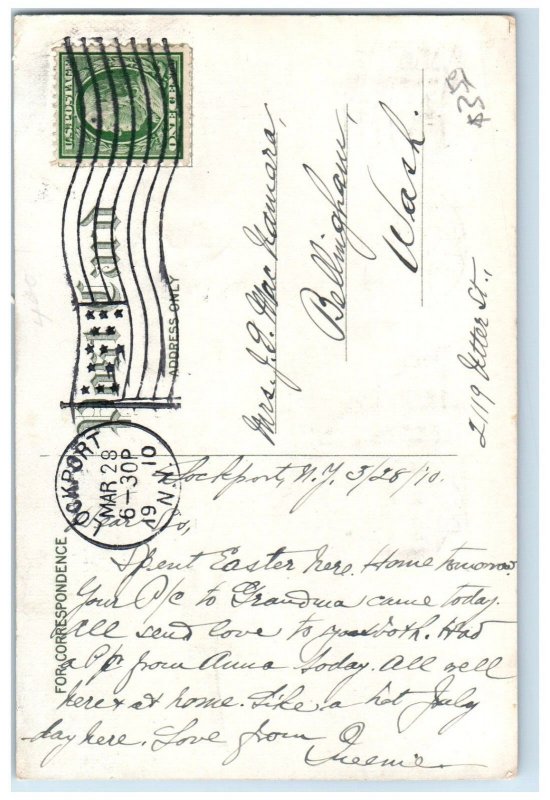 U.S. POSTAGE
ONE CENT
Post Card
ADDRESS ONLY
LOCKPORT
MAR 28
6-30P
1910
N.Y.
Mrs. J. E. MacNamara,
Bellingham,
Wash.
2119 St.,
FOR CORRESPONDENCE
Lockport, N.Y. 3/28/10.
Dear
Spent Easter here. Home tomorow.
Your P/c to Grandma came today.
All send love to both. Had
a P/c from Anna today. All well
here & at home. Like a hot July
day here. Love from
Queenie